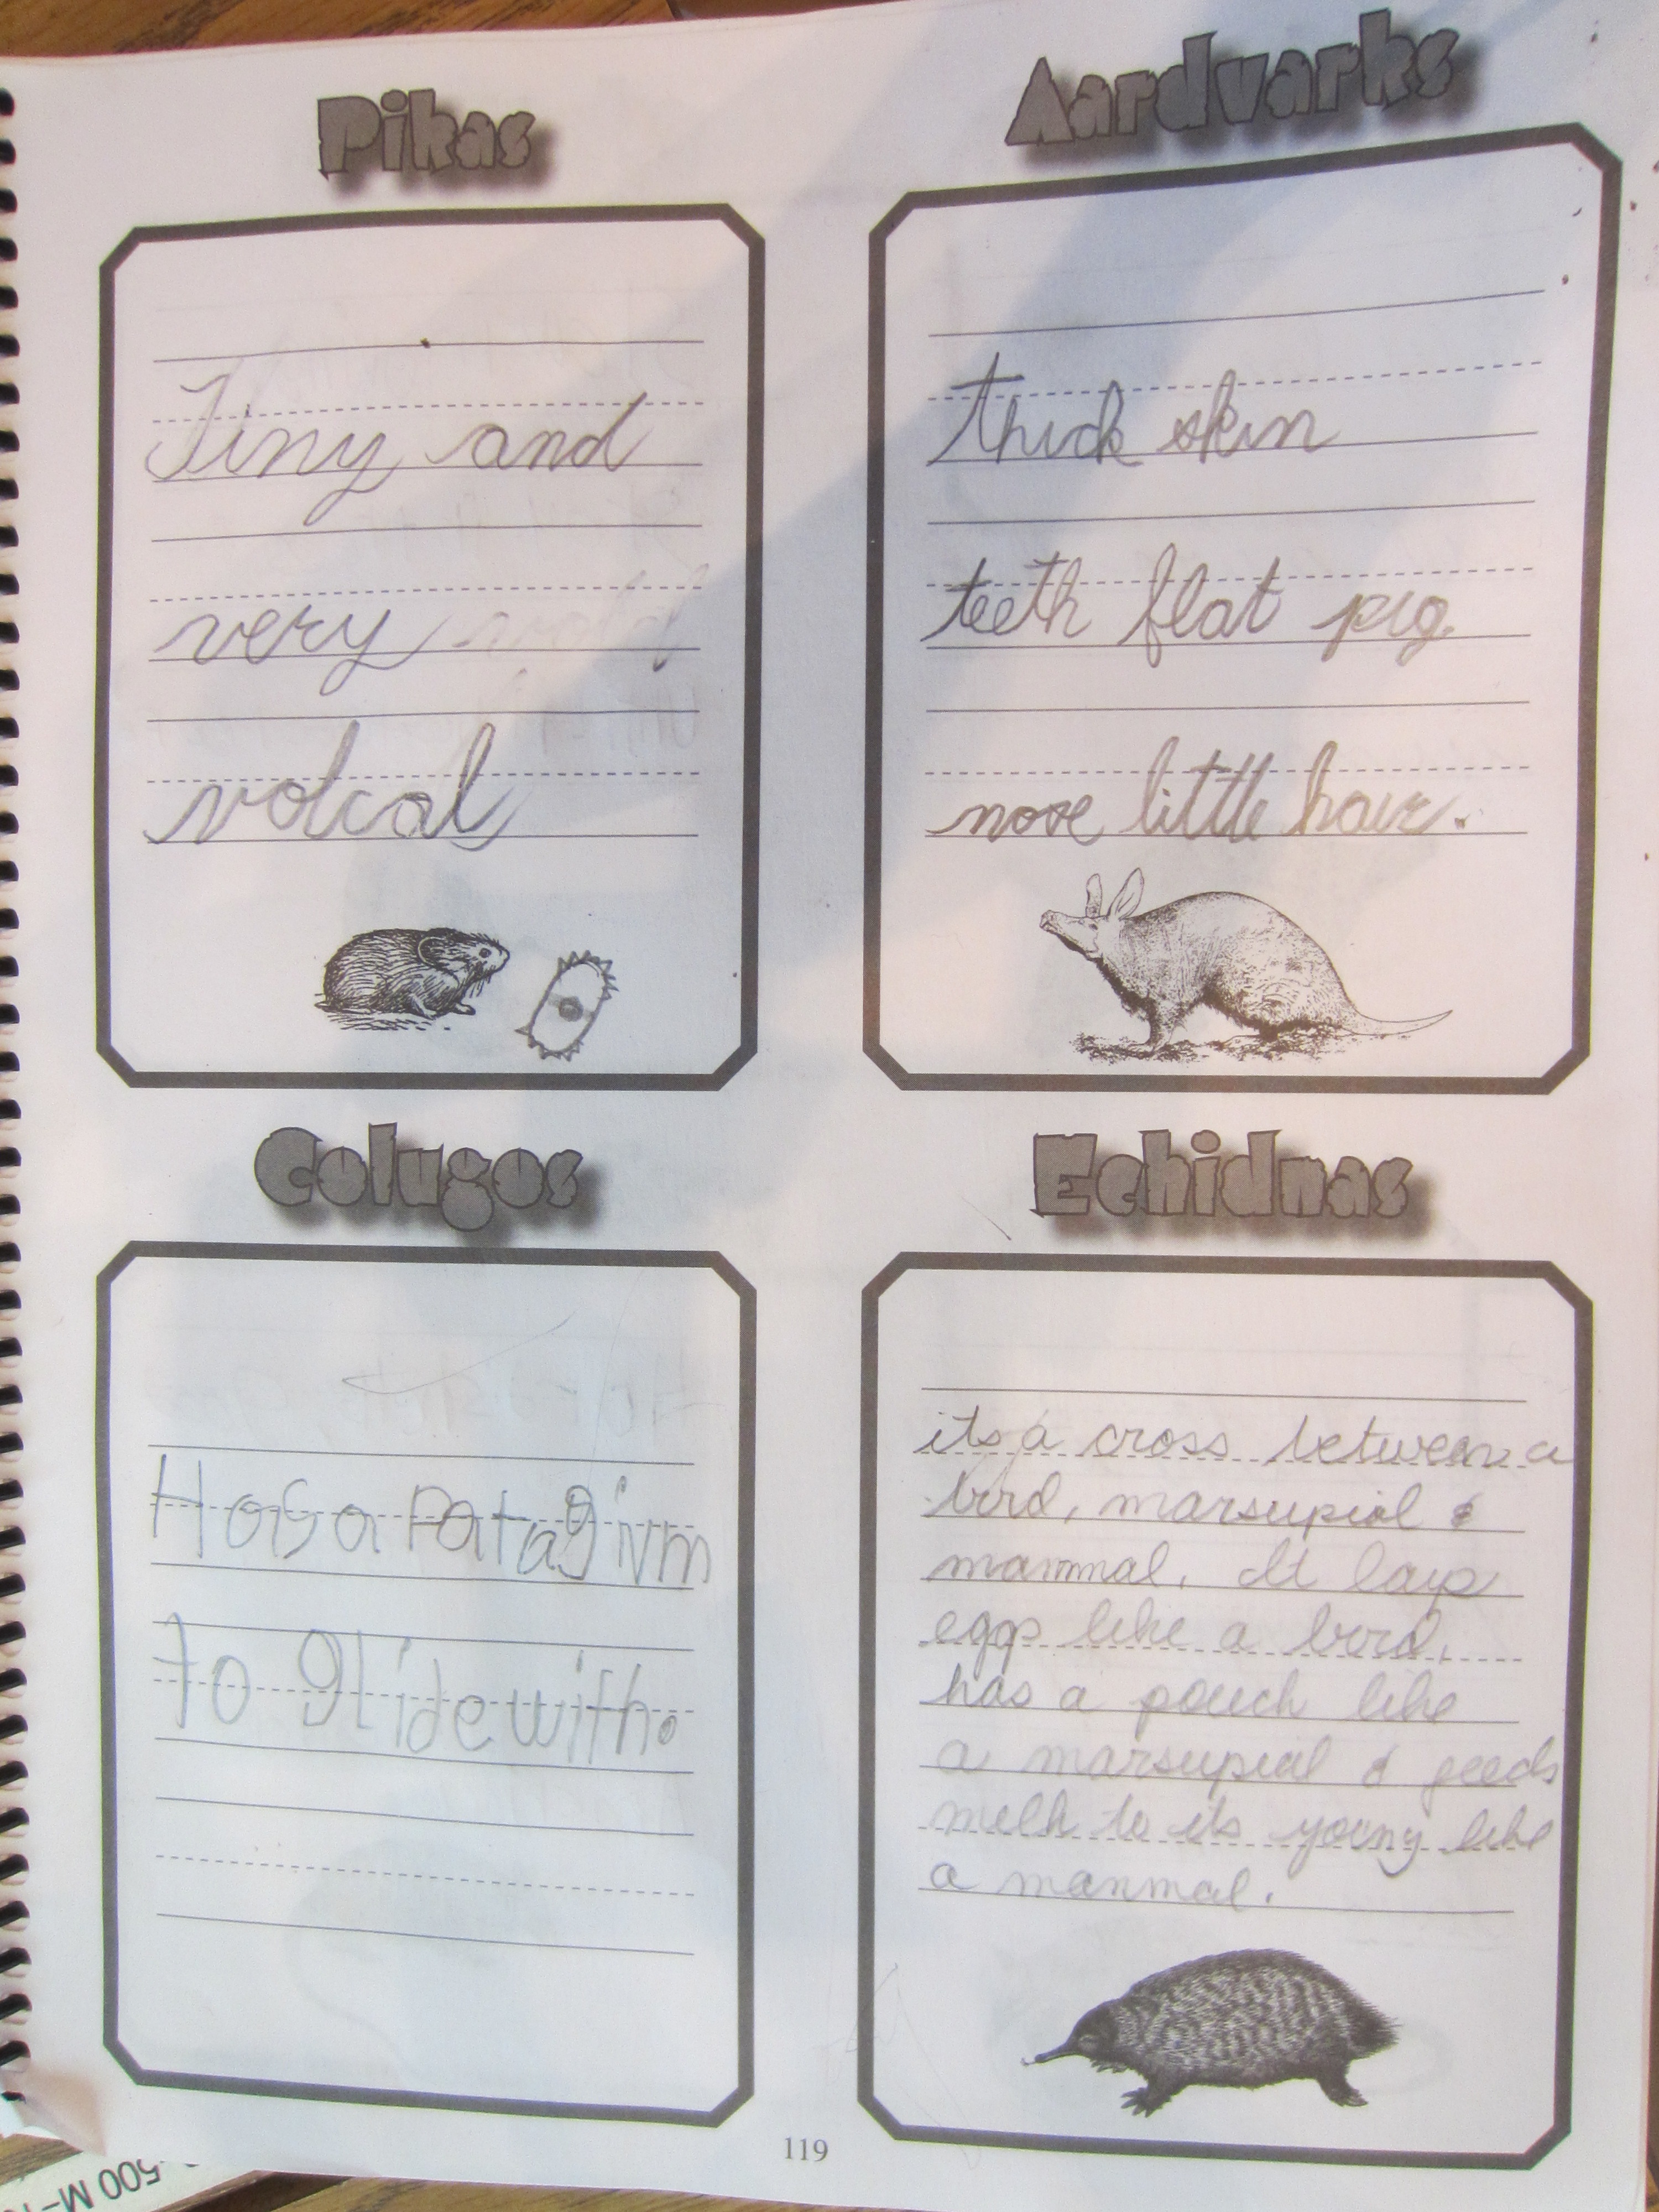 Pikas
Tiny and
very
volcal
Aardvarks
thick skin
teeth flat pig
nose little hair.
Colugos
Has a Patagium
to glide with.
Echidnas
its a cross between a
bird, marsupial &
mammal. It lays
eggs like a bird,
has a pouch like
a marsupial & feeds
milk to its young like
a mammal.
119
500 M-